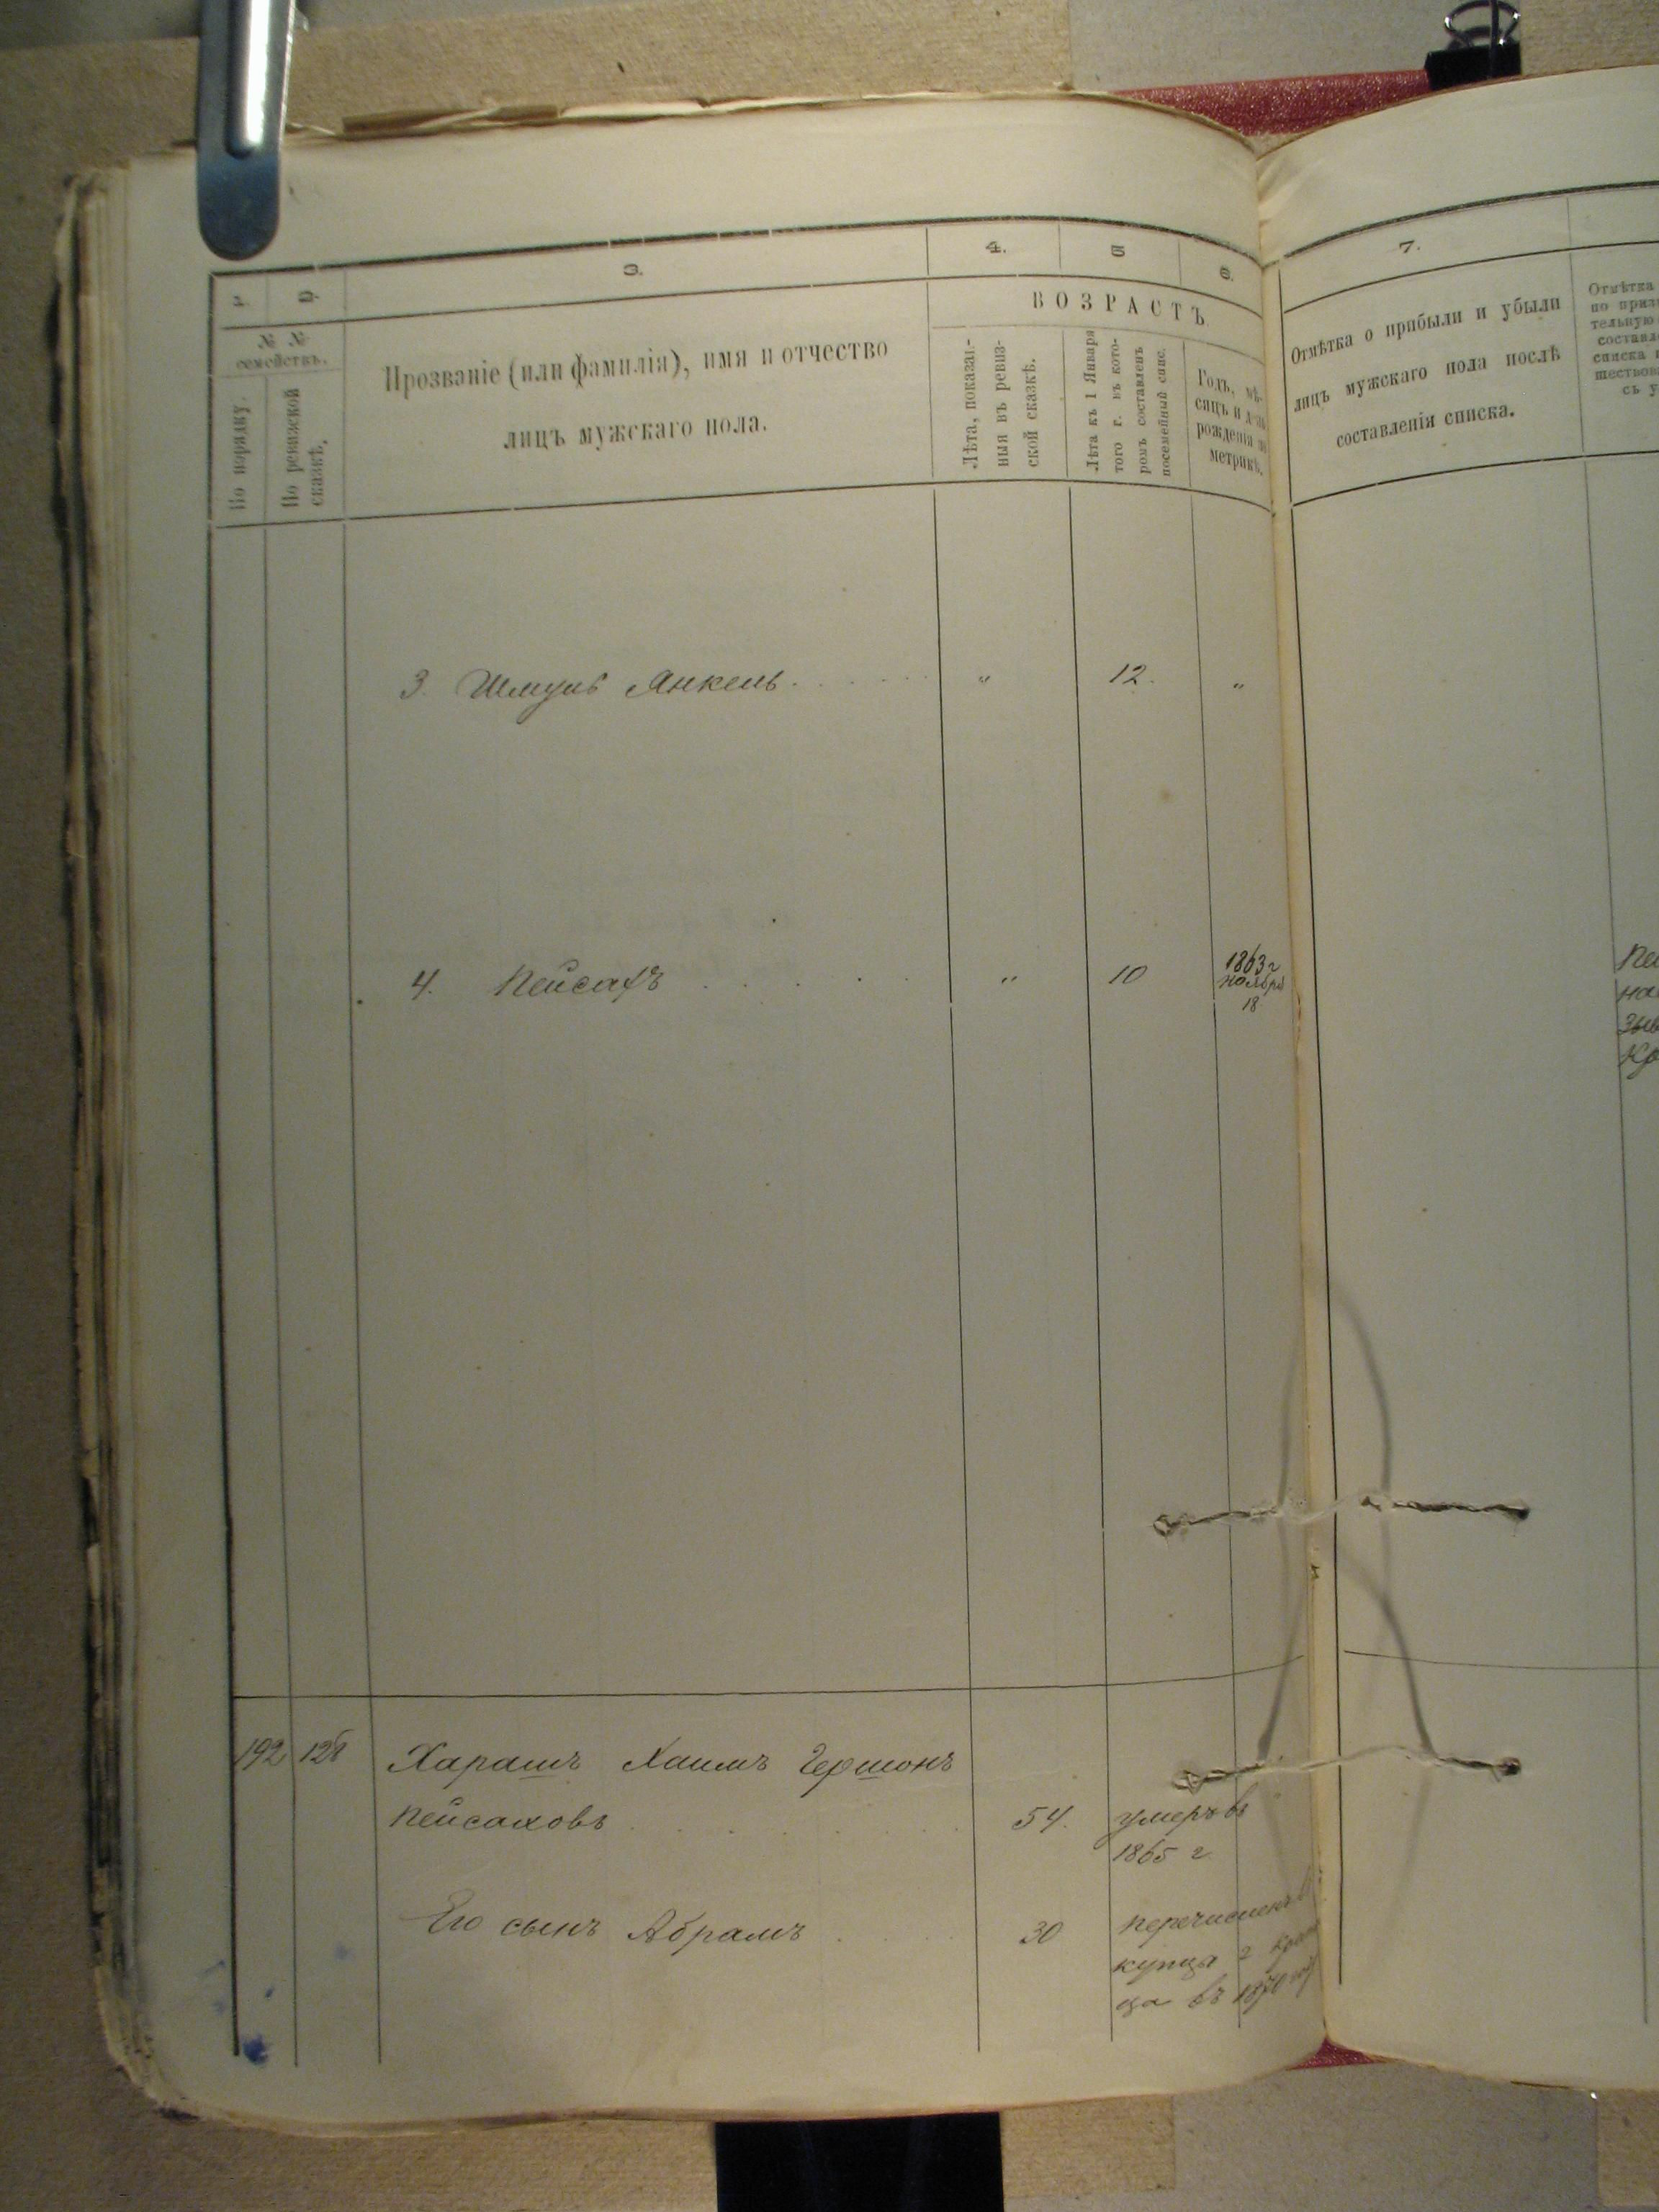 1. 2. 3. 4. 5 6. 7.
№ №
семействъ.
По порядку.
По ревизской
сказкѣ.
Прозваніе (или фамилія), имя и отчество
лицъ мужскаго пола.
ВОЗРАСТЪ
Лѣта, показан-
ныя въ ревиз-
ской сказкѣ.
Лѣта къ 1 Января
того г. въ кото-
ромъ составленъ
посемейный спис.
Годъ, мѣ-
сяцъ и день
рожденія по
метрикѣ.
Отмѣтка о прибыли и убыли
лицъ мужскаго пола послѣ
составленія списка.
Отмѣтка
по приз
тельную
составл
списка
шествов
съ у
3. Шмуль Янкель . . . . . . " 12. "
4. Пейсахъ . . . . . " 10 1863 г
ноября
18
192 128 Харашъ Хаимъ Гершонъ
Пейсаховъ . . . . . . 54. умеръ въ
1865 г.
Его сынъ Абрамъ . . . . 30 перечисленъ
купца 2
ца въ 1870